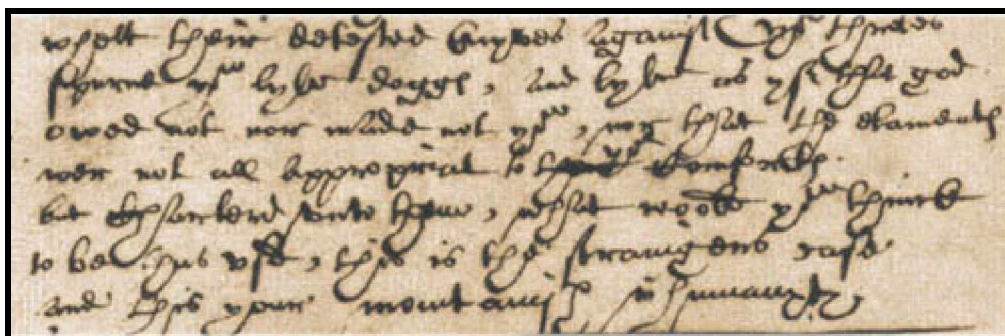 whett their detested knyves against yor throtes
spurne yow lyke doggs, and lyke as yf that god
owed not nor made not yow, nor that the elaments
wer not all appropriat to yor Comforts.
but Charterd vnto them, what woold yow thinck
to be thus vsd, this is the straingers case
and this your momtanish inhumanyty